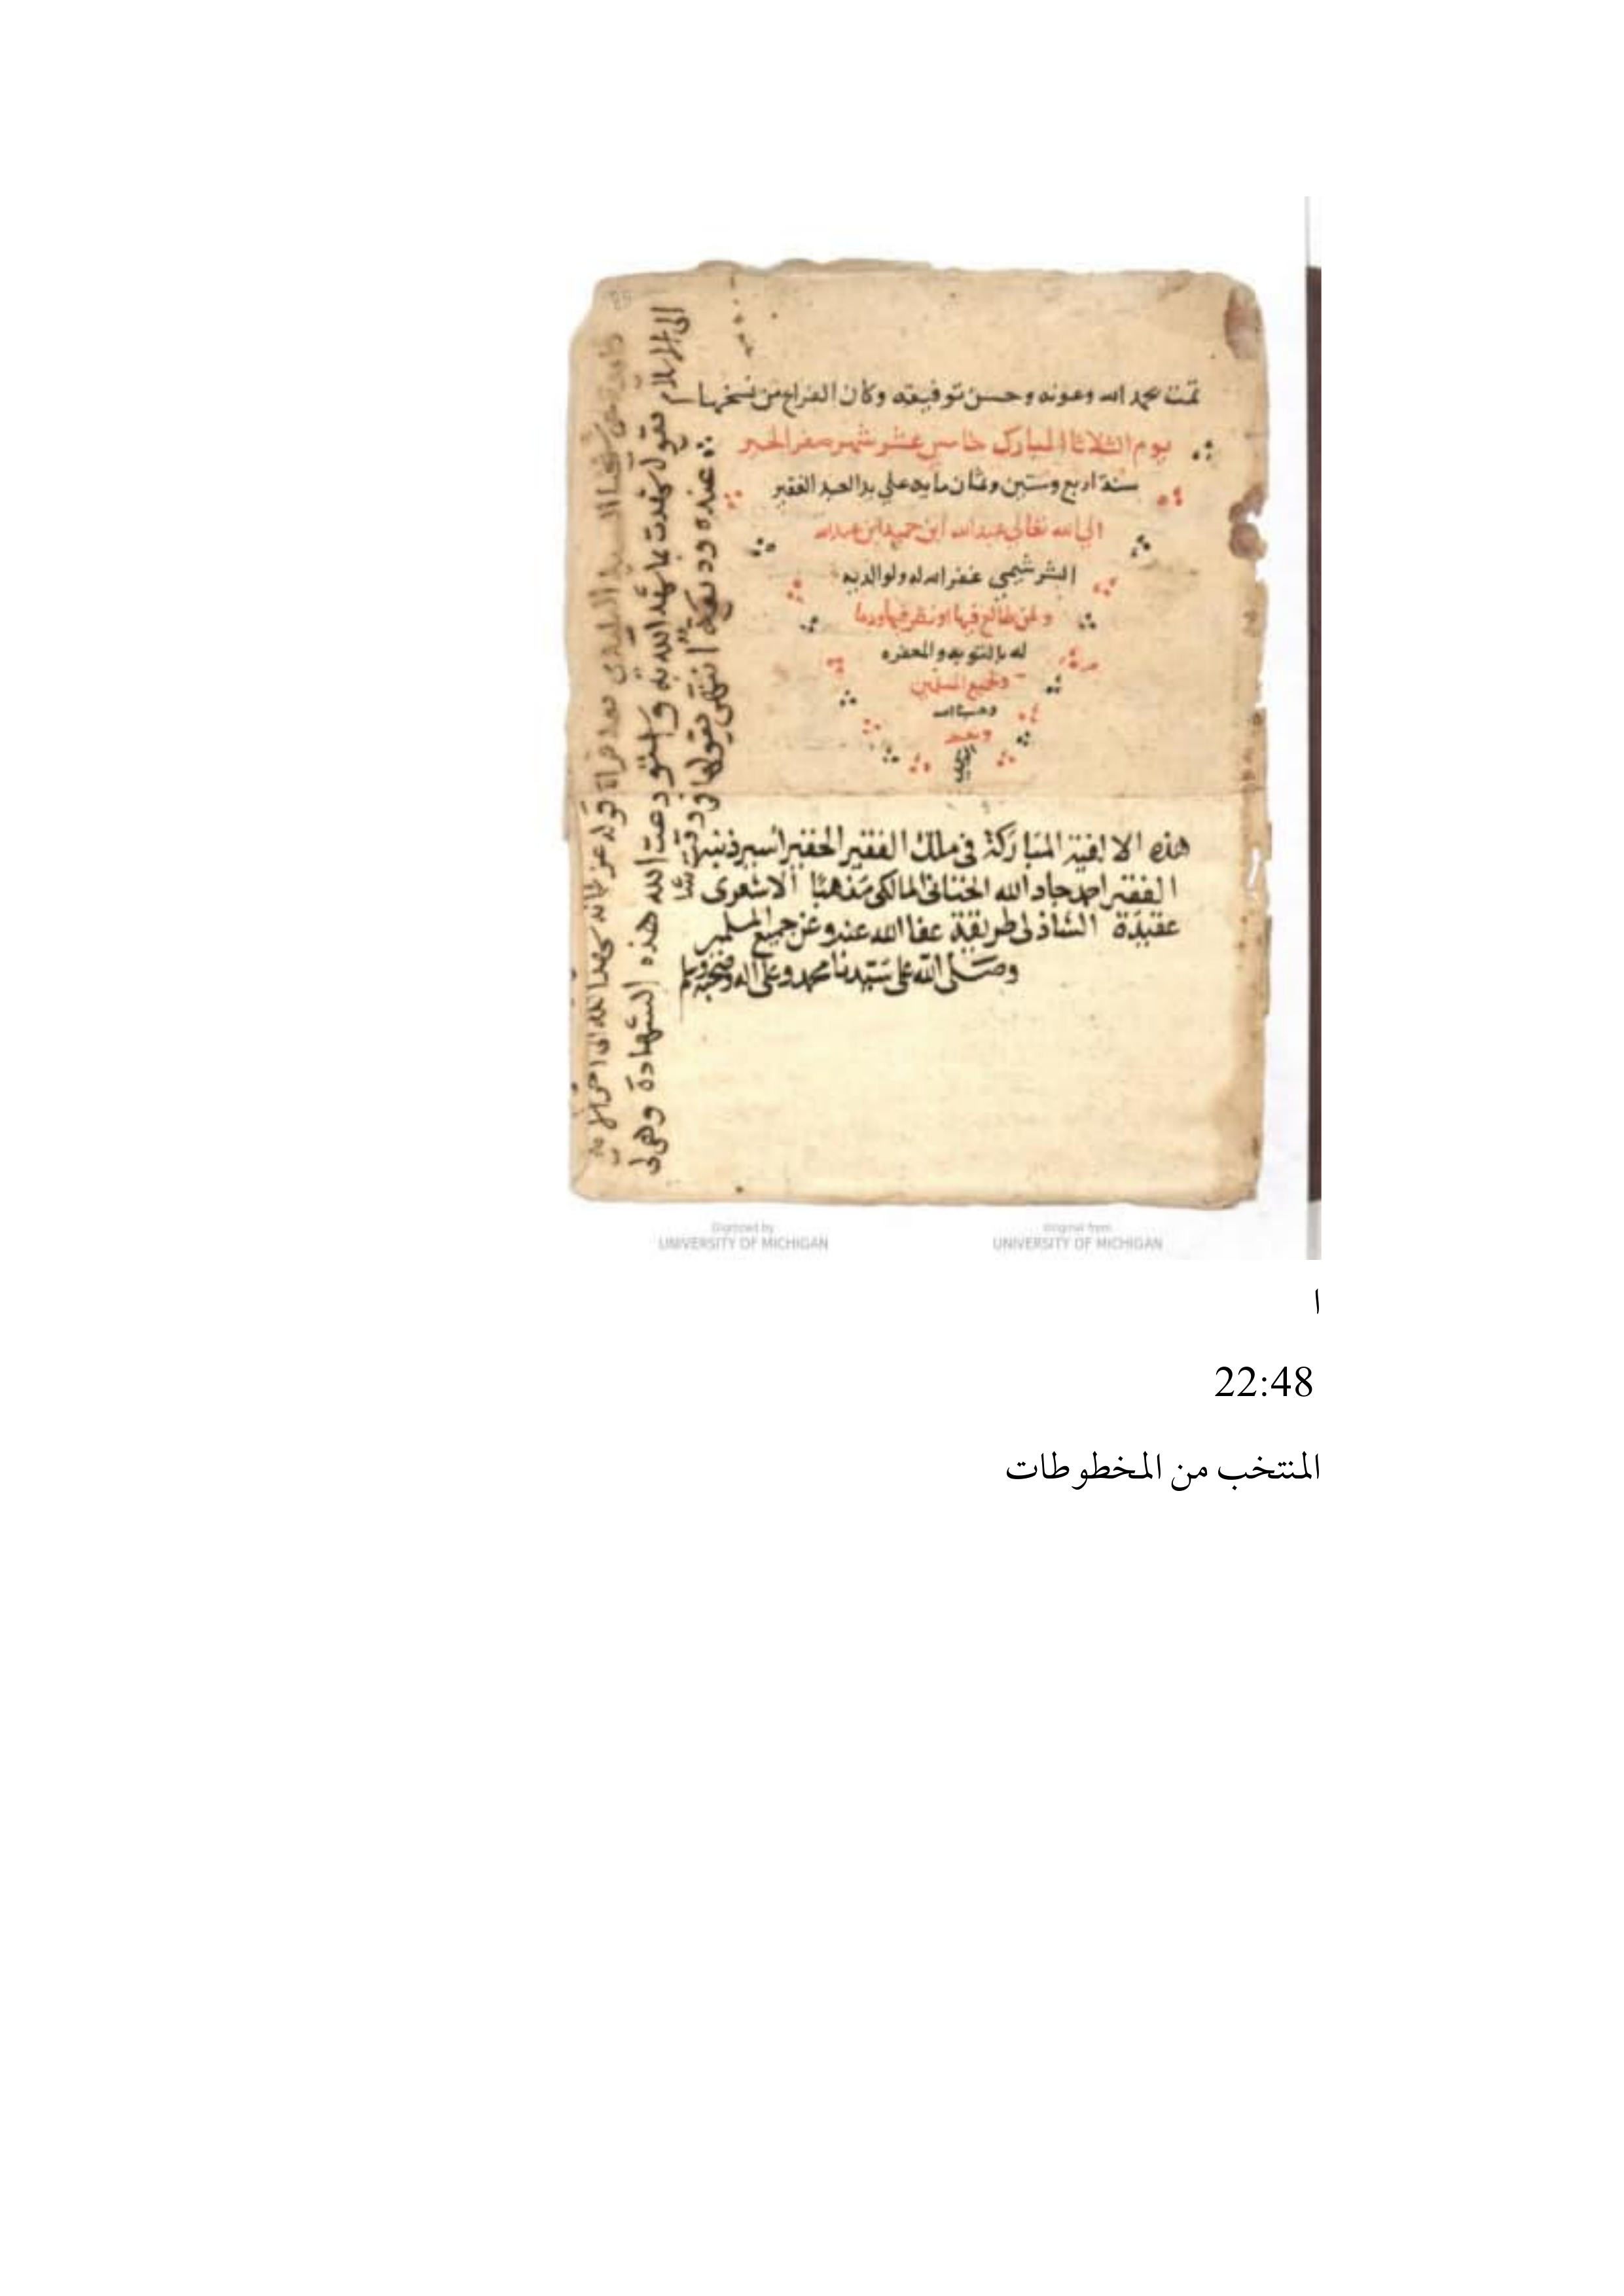 تمت بحمد الله وعونه وحسن توفيقه وكان الفراغ من نسخها
يوم الثلاثا المبارك خامس عشر شهر صفر الخير
سنة اربع وستين وثمان مايه علي يد العبد الفقير
الي الله تعالي عبدالله ابن حميد ابن عبدالله
غفر الله له ولوالديه
ولمن طالع فيها او نظر فيها ودعا
له بالتوبه والمغفره
ولجميع المسلمين
وحسبنا الله
ونعم
الوكيل
هذه الالفية المباركة في ملك الفقير الحقير أسير ذنبه
الفقير احمد جاد الله الخنانى المالكى مذهبًا الاشعرى
عقيدة الشاذلى طريقة عفا الله عنه وعن جميع المسلمين
وصلى الله على سيدنا محمد وعلى اله وصحبه وسلم
قوله عز
الى الاسلام تقول شهدت بما شهد الله به واستودعت الله هذه الشهادة وهى لى
عنده وديعة انتهى تقولها
Digitized by
UNIVERSITY OF MICHIGAN
Original from
UNIVERSITY OF MICHIGAN
ا
22:48
المنتخب من المخطوطات